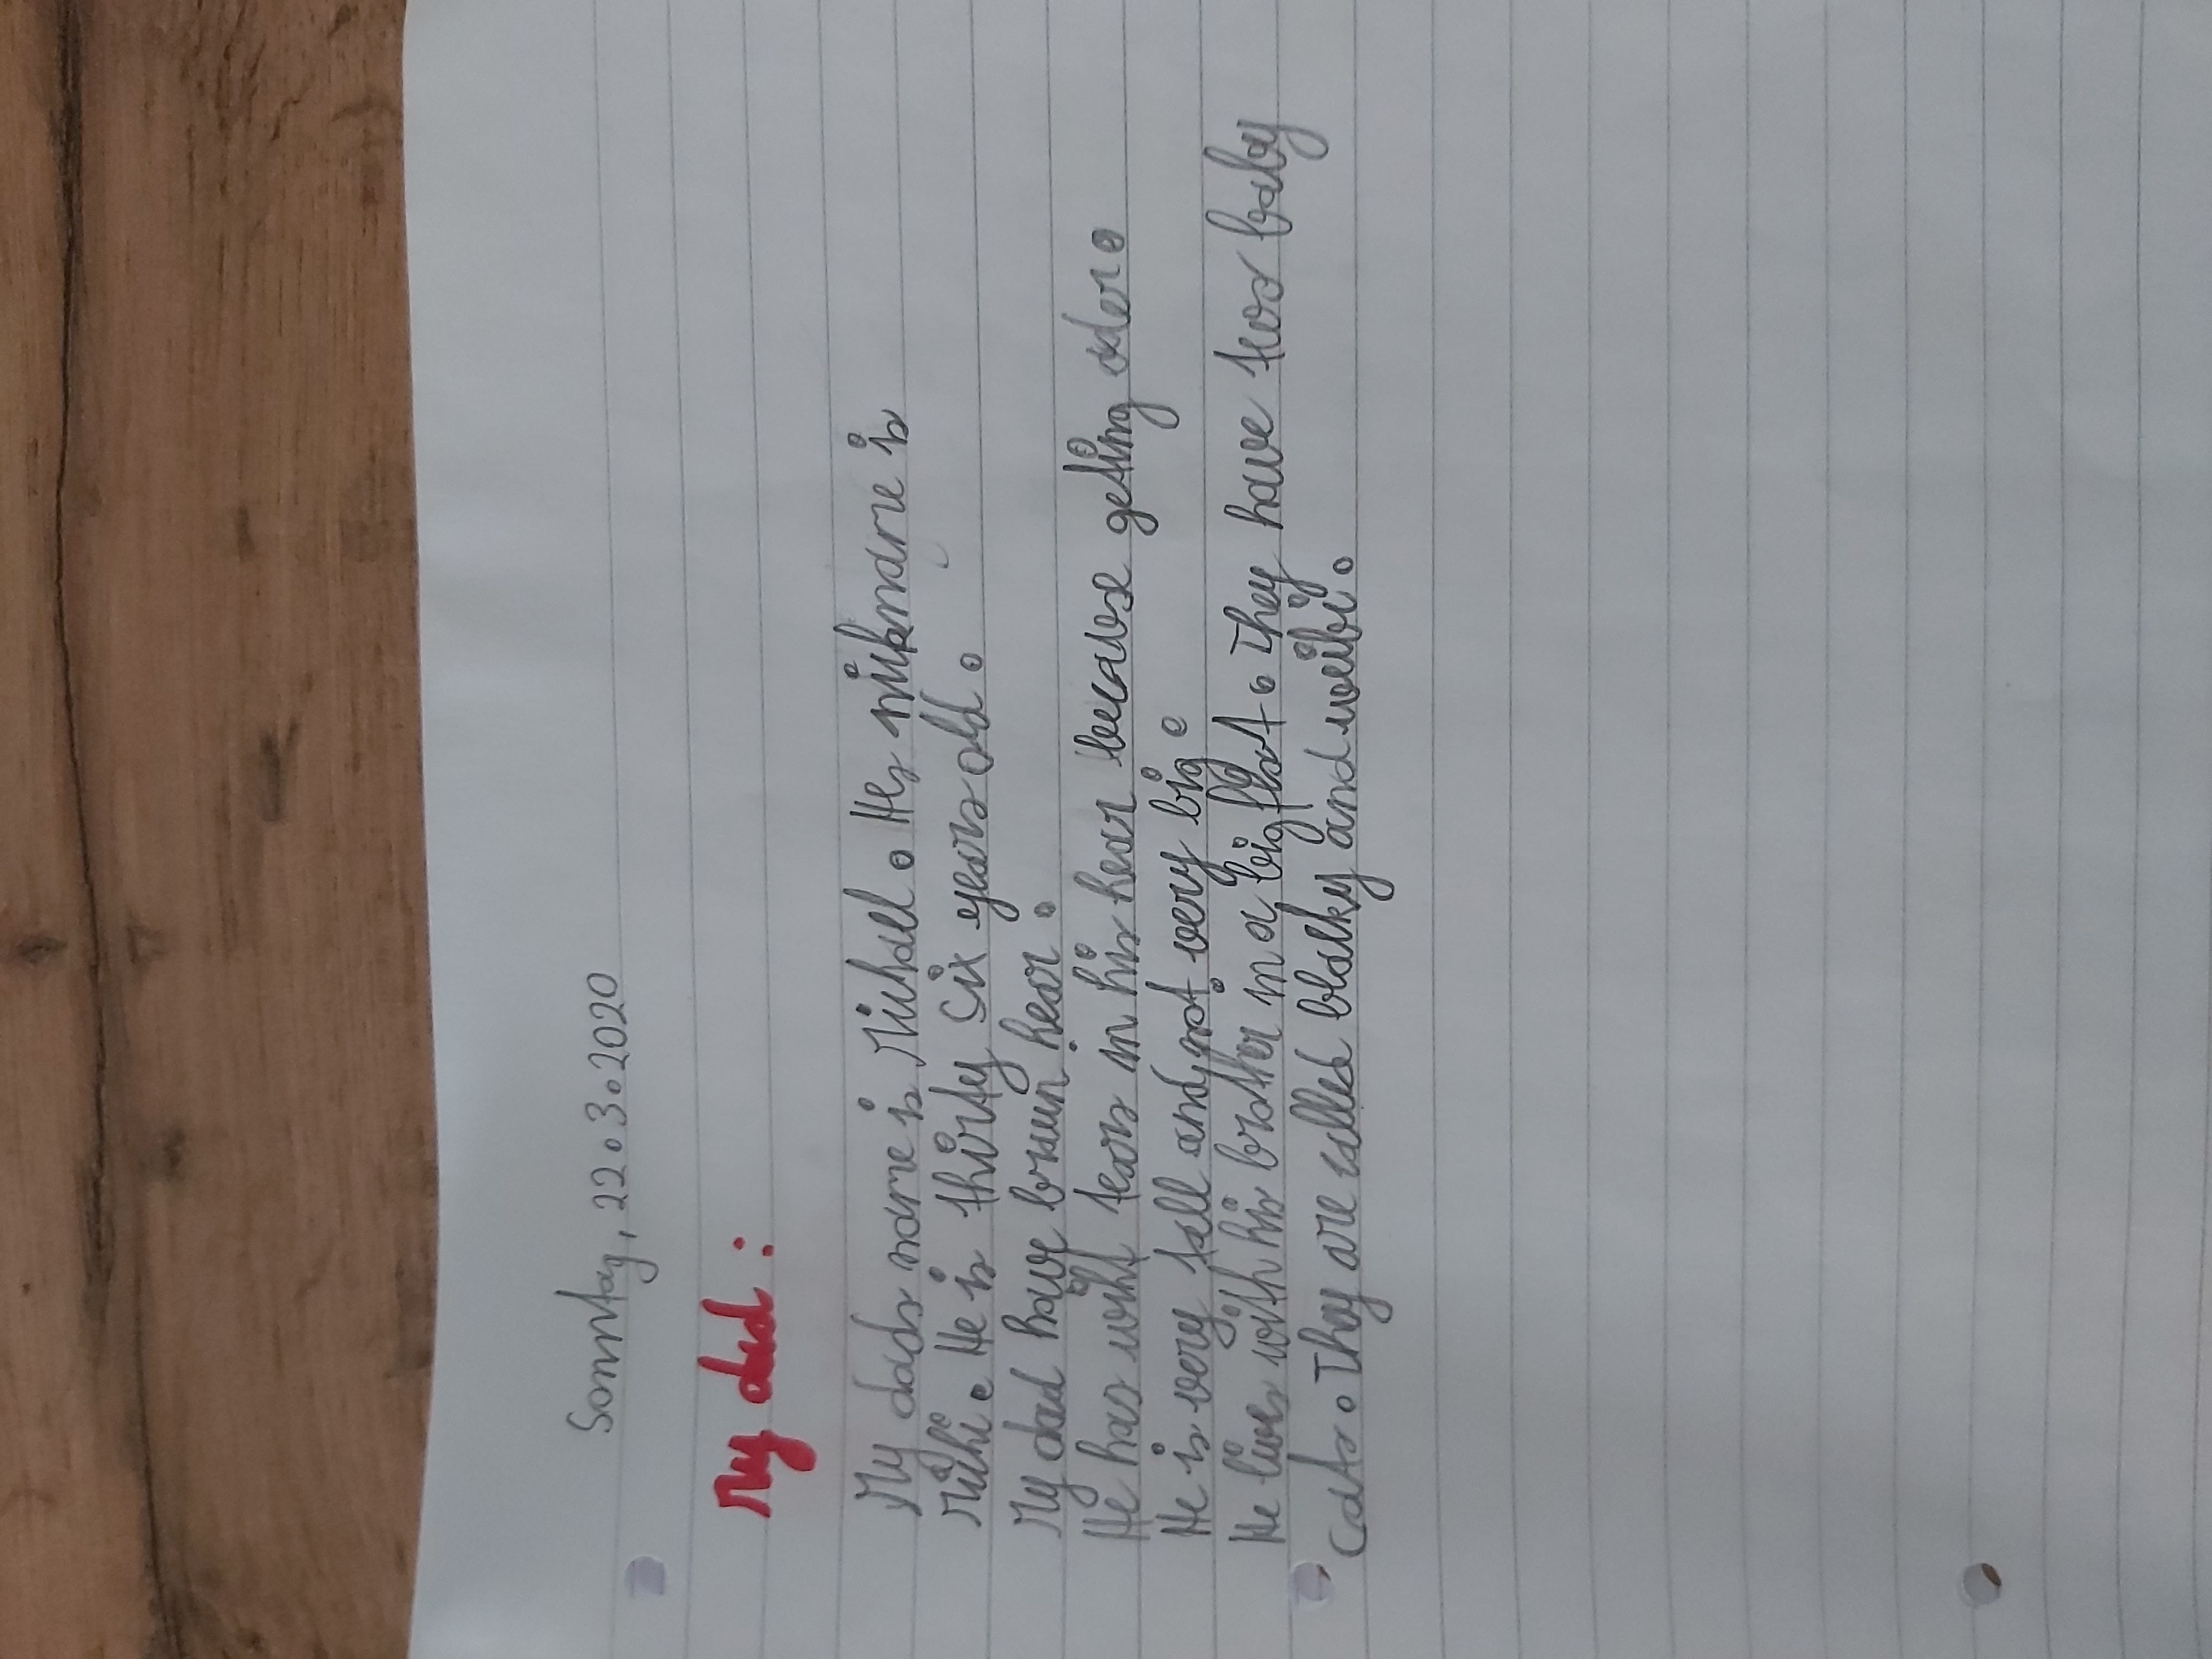 Sonntay, 22.3.2020
My dad:
My dads name is Michael. Hes nickname is
Michi. He is thirty six years old.
My dad have braun hear.
He has whit hears in his hear because geting older.
He is very tall and not very big.
He lives with his brother in a big flat. They have two baby
cats. They are called blacky and weibi.